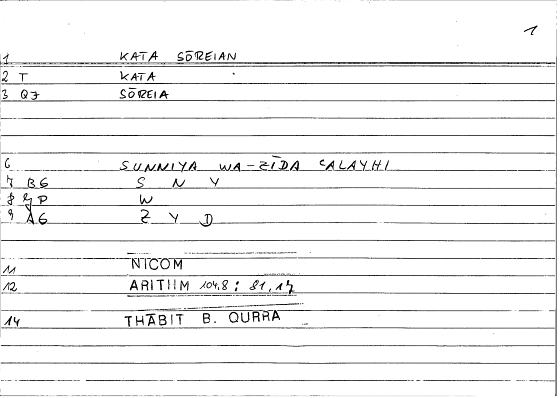 1
1 KATA SŌREIAN
2 T KATA
3 QJ SŌREIA
6 SUNNIYA WA-ZĪDA ʿALAYHI
7 BG S N Y
8 W
9 AG Z Y D
11 NICOM
12 ARITIIM 104,8 : 81,17
14 THĀBIT B. QURRA